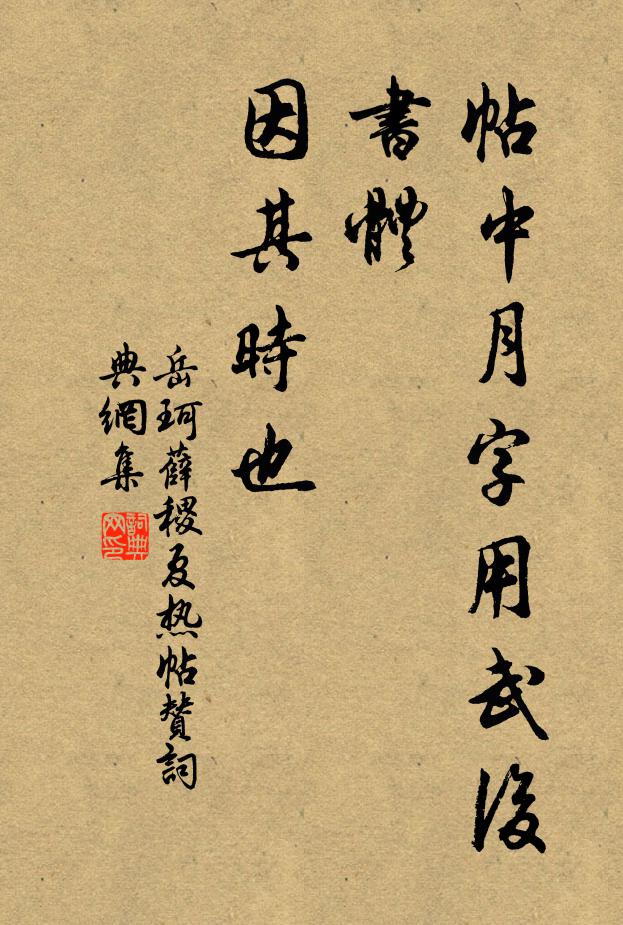 帖中月字用武後
書體
因其時也
岳珂薛稷夏热帖贊詞
典網集
詞典网印